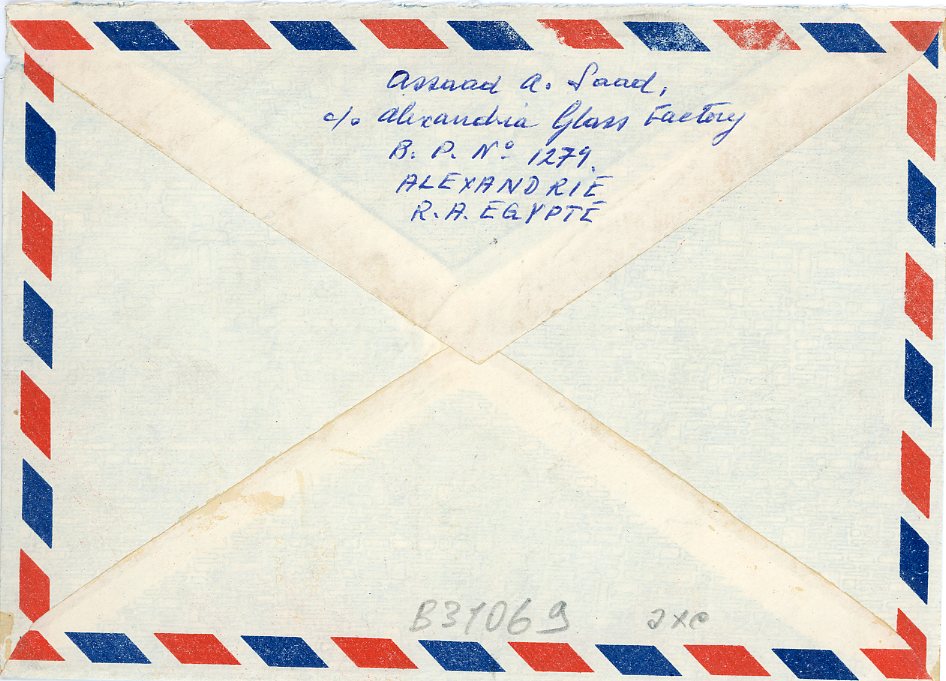 Assaad A. Saad,
c/o Alexandria Glass Factory
B. P. Nº 1279.
ALEXANDRIE
R. A. EGYPTE
B31069